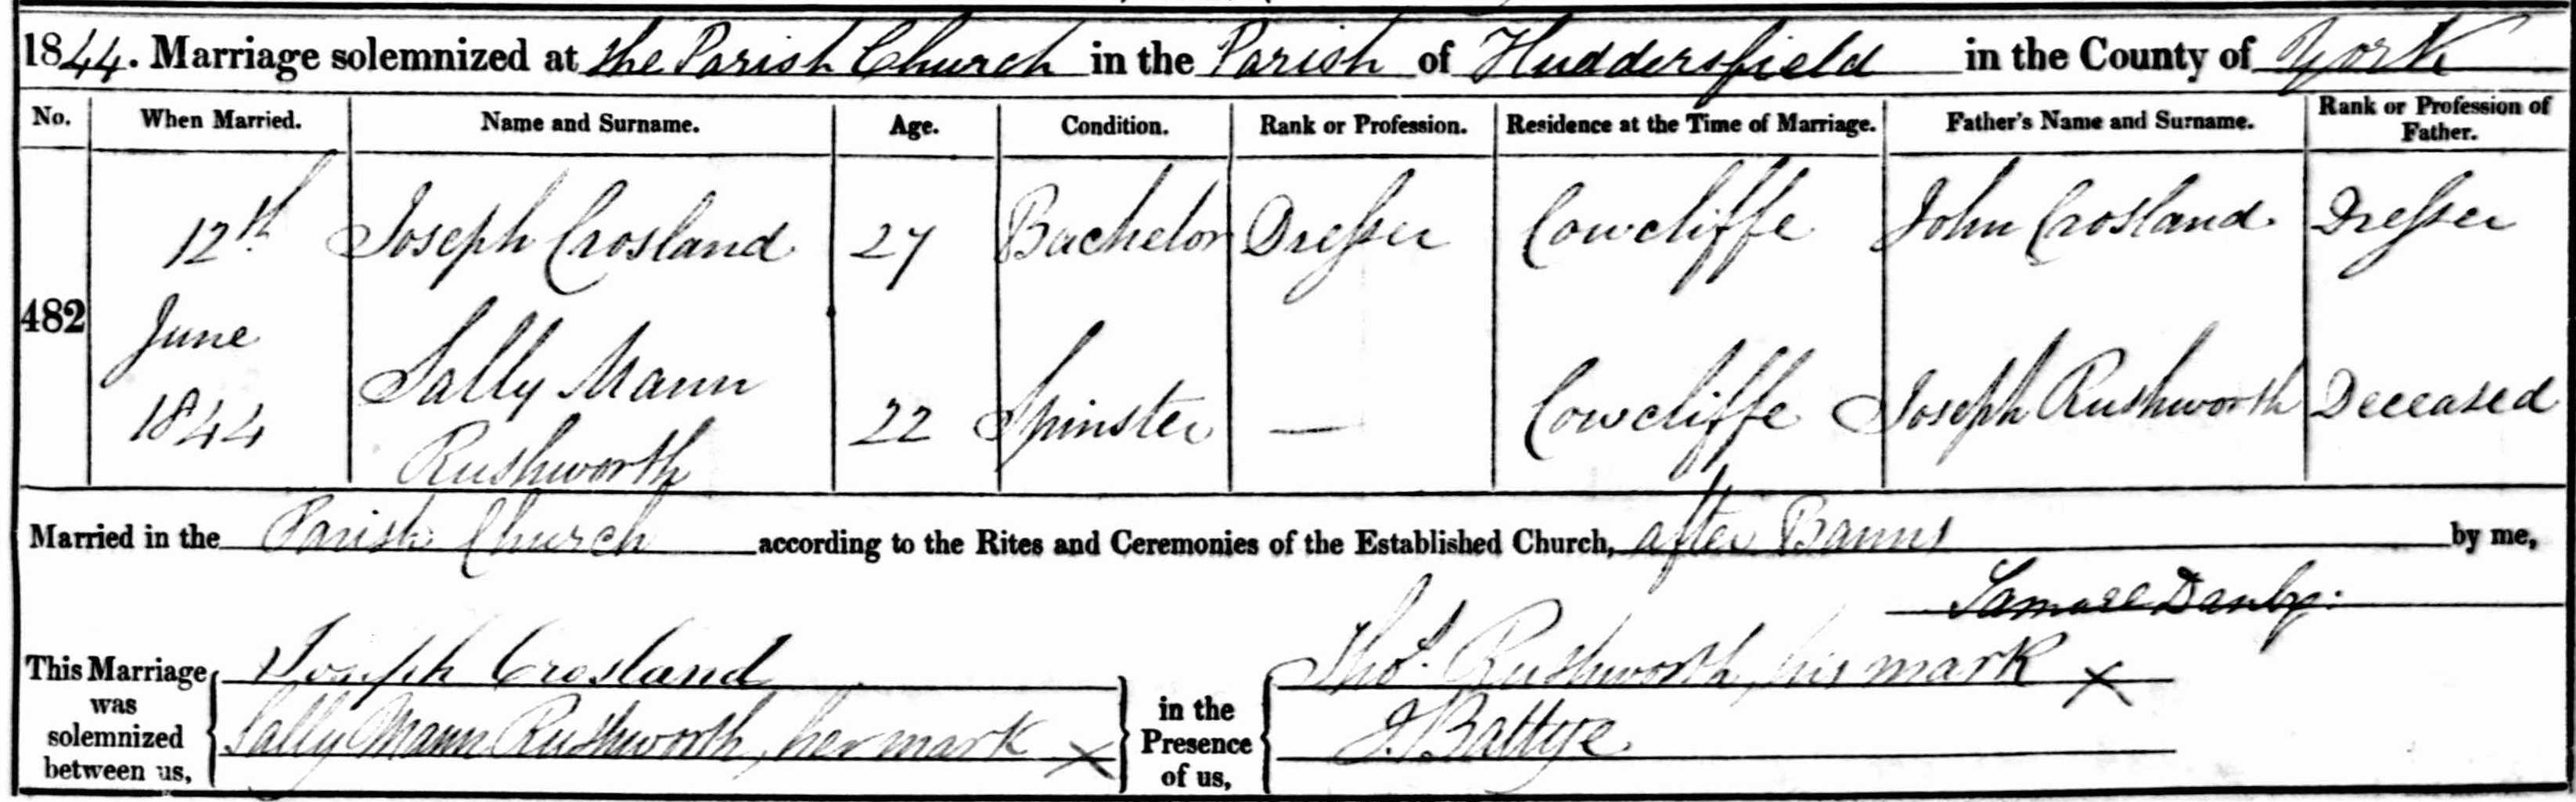 1844. Marriage solemnized at the Parish Church in the Parish of Huddersfield in the County of York
No. When Married. Name and Surname. Age. Condition. Rank or Profession. Residence at the Time of Marriage. Father's Name and Surname. Rank or Profession of Father.
482
12th June 1844
Joseph Crosland 27 Bachelor Dresser Cowcliffe John Crosland Dresser
Sally Mann Rushworth 22 Spinster — Cowcliffe Joseph Rushworth Deceased
Married in the Parish Church according to the Rites and Ceremonies of the Established Church, after Banns by me,
Samuel Danby.
This Marriage was solemnized between us,
Joseph Crosland
Sally Mann Rushworth, her mark X
in the Presence of us,
Thos. Rushworth, his mark X
J. Battye